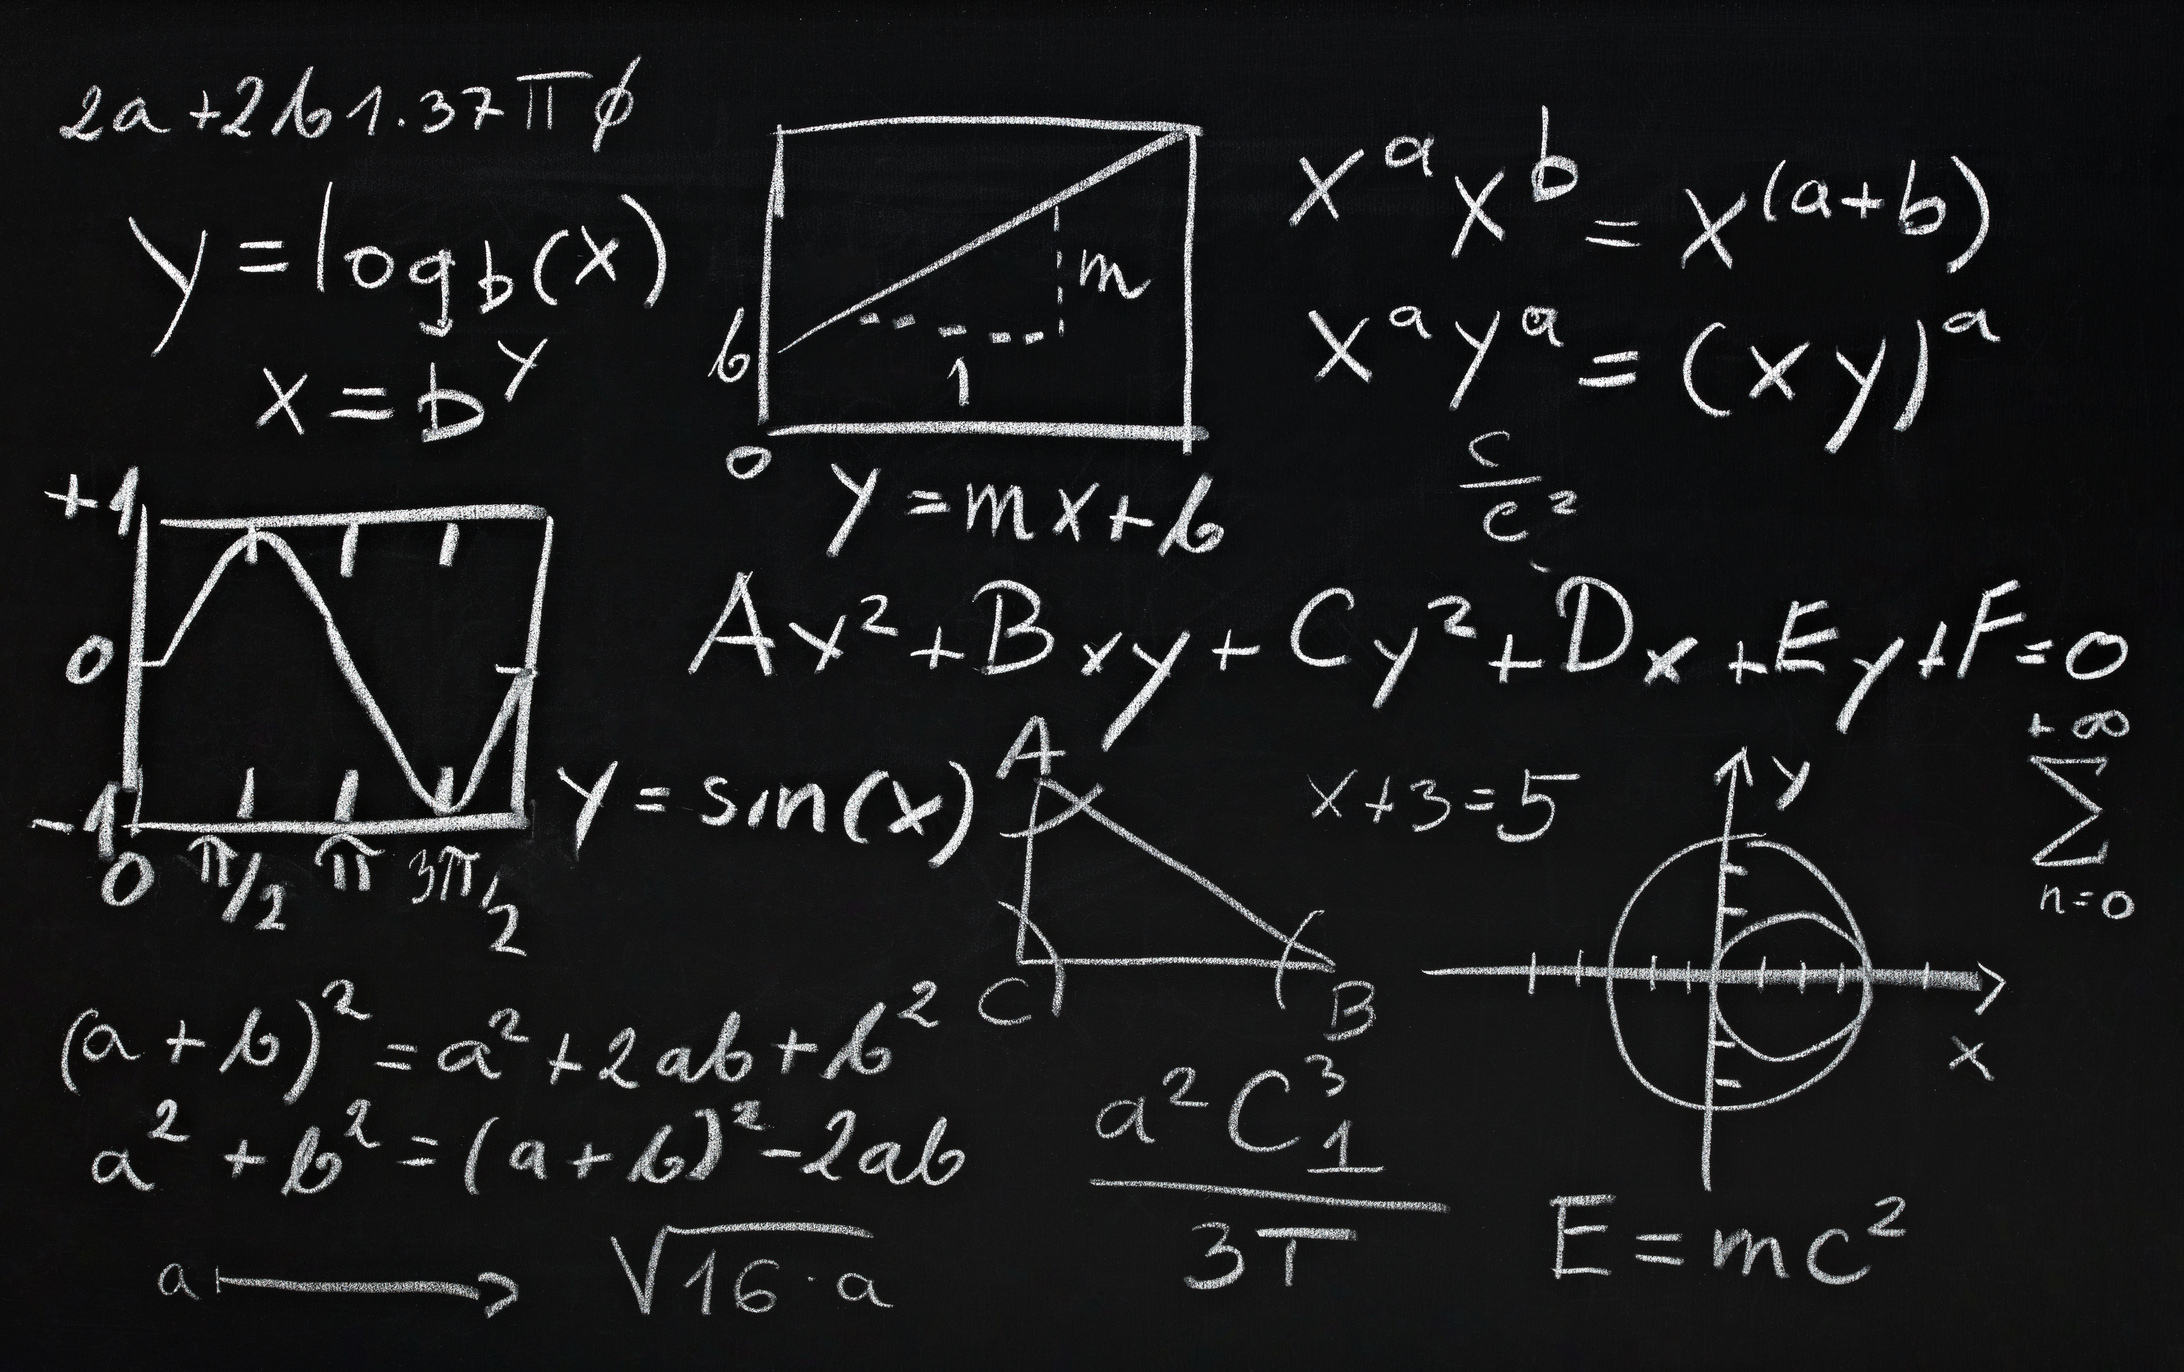 2a+2b1.37πϕ
y=log_b(x)
x=b^y
b
m
1
0
y=mx+b
x^a x^b=x^(a+b)
x^a y^a=(xy)^a
c/c^2
+1
0
-1
0 π/2 π 3π/2
y=sin(x)
Ax²+Bxy+Cy²+Dx+Ey+F=0
A
C
B
x+3=5
y
x
+∞
∑
n=0
(a+b)²=a²+2ab+b²
a²+b²=(a+b)²-2ab
a ↦
√16·a
a²C₁³
3T
E=mc²